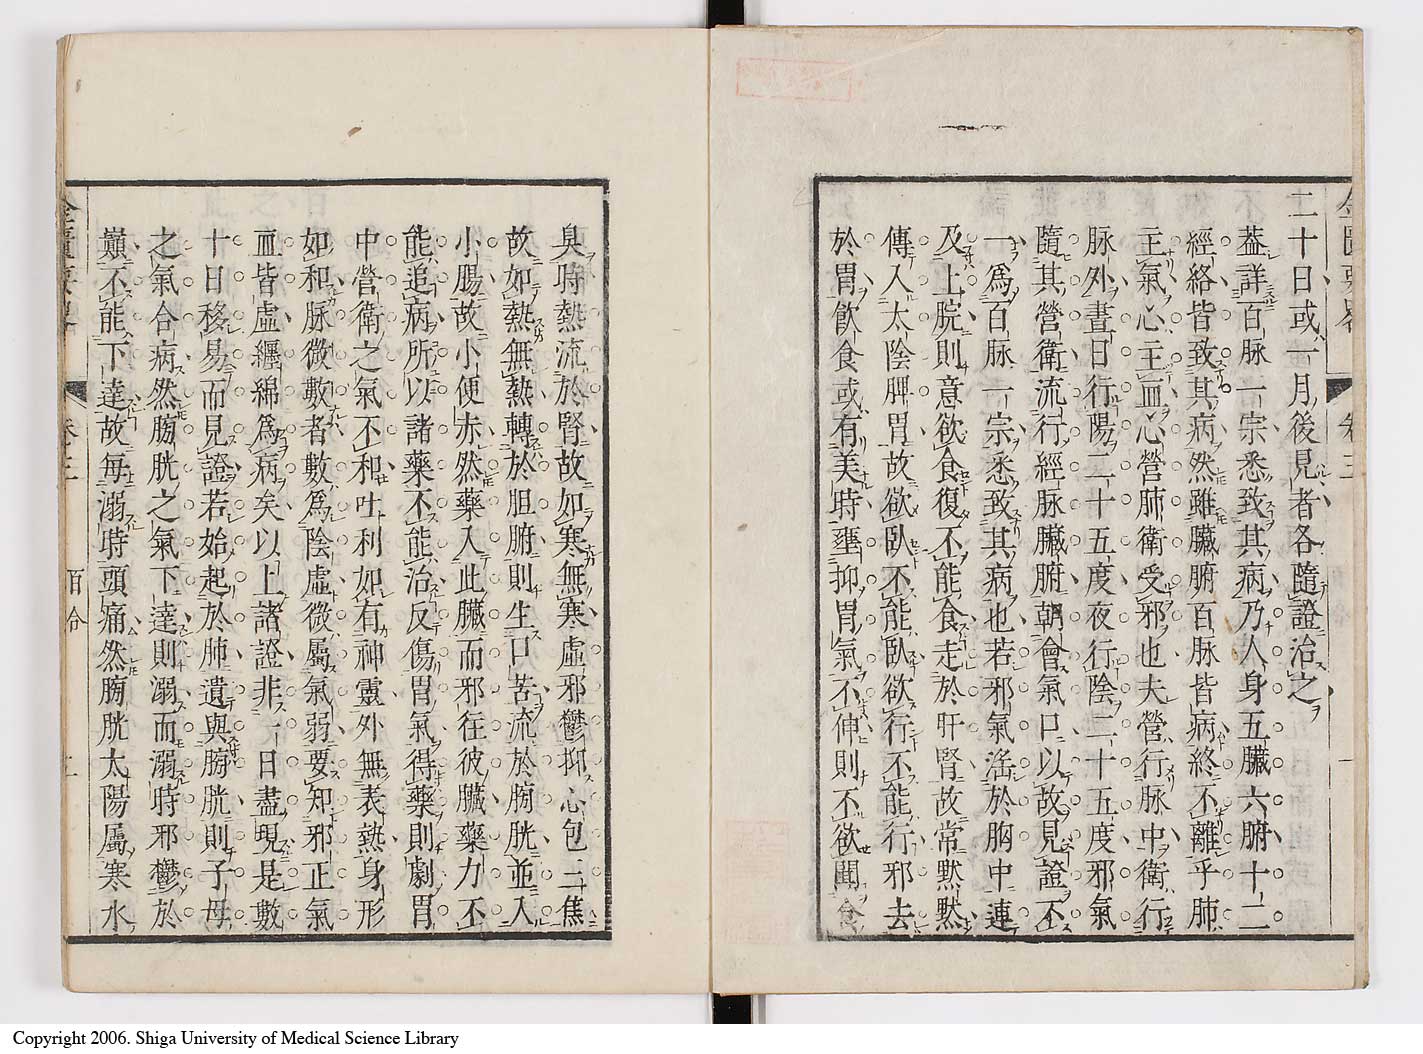 二十日或一月後見者各隨證治之
葢詳百脉一宗悉致其病乃人身五臟六腑十二
經絡皆致其病然雖臟腑百脉皆病終不離乎肺
主氣心主血心營肺衛受邪也夫營行脉中衛行
脉外晝日行陽二十五度夜行陰二十五度邪氣
隨其營衛流行經脉臟腑朝會氣口以故見證不
一爲百脉一宗悉致其病也若邪氣淫於胸中連
及上脘則意欲食復不能食走於肝腎故常默默
傳入太陰脾胃故欲臥不能臥欲行不能行邪去
於胃飮食或有美時壅抑胃氣不伸則不欲聞食
臭時熱流於腎故如寒無寒虛邪鬱抑心包三焦
故如熱無熱轉於胆腑則生口苦流於膀胱並入
小腸故小便赤然藥入此臟而邪往彼臟藥力不
能追病所以諸藥不能治反傷胃氣得藥則劇胃
中營衛之氣不和吐利如有神靈外無表熱身形
如和脉微數者數爲陰虛微屬氣弱要知邪正氣
血皆虛纒綿爲病矣以上諸證非一日盡現是數
十日移易而見證若始起於肺遺與膀胱則子母
之氣合病然膀胱之氣下達則溺而溺時邪鬱於
巔不能下達故每溺時頭痛然膀胱太陽屬寒水
金匱要畧
卷三
百合
Copyright 2006. Shiga University of Medical Science Library